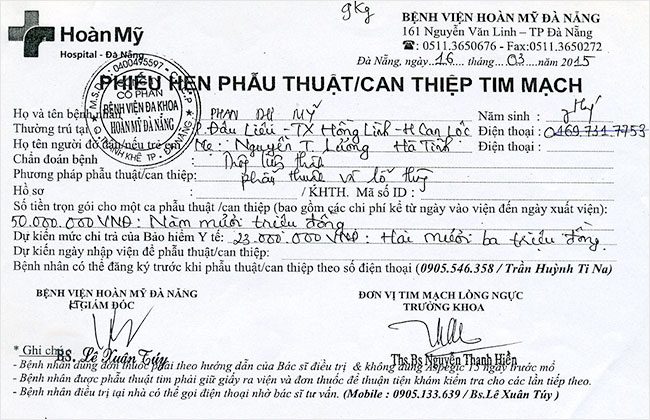 9kg
HoànMỹ
Hospital - Đà Nẵng
BỆNH VIỆN HOÀN MỸ ĐÀ NẴNG
161 Nguyễn Văn Linh – TP Đà Nẵng
☎: 0511.3650676 - Fax:0511.3650272
Đà Nẵng, ngày 16 tháng 03 2015
0400495597
CỔ PHẦN
BỆNH VIỆN ĐA KHOA
HOÀN MỸ ĐÀ NẴNG
PHIẾU HẸN PHẪU THUẬT/CAN THIỆP TIM MẠCH
Họ và tên bệnh nhân PHAN DY MỸ Năm sinh :
Thường trú tại Đậu Liêu - TX Hồng Lĩnh - H Can Lộc Điện thoại : 0469.731.7753
Họ tên người đỡ đầu/nếu trẻ em Mẹ : Nguyễn T. Lương Hà Tĩnh
Chẩn đoán bệnh Thông liên thất
Phương pháp phẫu thuật/can thiệp: phẫu thuật vá lỗ thủng
Hồ sơ /KHTH. Mã số ID :
Số tiền trọn gói cho một ca phẫu thuật /can thiệp (bao gồm các chi phí kể từ ngày vào viện đến ngày xuất viện):
50.000.000 VNĐ : Năm mươi triệu đồng
Dự kiến mức chi trả của Bảo hiểm Y tế: 23.000.000 VNĐ : Hai mươi ba triệu đồng.
Dự kiến ngày nhập viện để phẫu thuật/can thiệp:
Bệnh nhân có thể đăng ký trước khi phẫu thuật/can thiệp theo số điện thoại (0905.546.358 / Trần Huỳnh Ti Na)
BỆNH VIỆN HOÀN MỸ ĐÀ NẴNG
KT GIÁM ĐỐC
ĐƠN VỊ TIM MẠCH LỒNG NGỰC
TRƯỞNG KHOA
BS. Lê Xuân Túy
Ths.Bs Nguyễn Thanh Hiền
* Ghi chú
- Bệnh nhân dùng đơn thuốc phải theo hướng dẫn của Bác sĩ điều trị & không dùng Aspegic 15 ngày trước mổ
- Bệnh nhân được phẫu thuật tim phải giữ giấy ra viện và đơn thuốc để thuận tiện khám kiểm tra cho các lần tiếp theo.
- Bệnh nhân điều trị tại nhà có thể gọi điện thoại nhờ bác sĩ tư vấn. (Mobile : 0905.133.639 / Bs.Lê Xuân Túy )